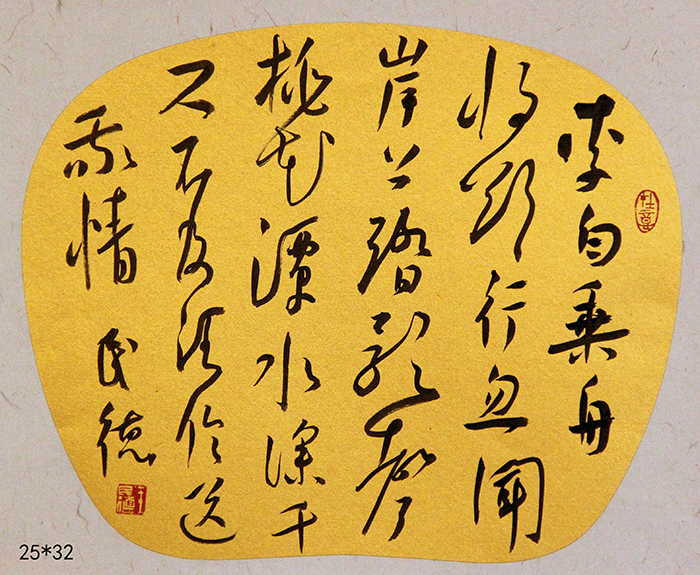 李白乘舟
將欲行忽聞
岸上踏歌聲
桃花潭水深千
尺不及汪倫送
我情 民德
25*32